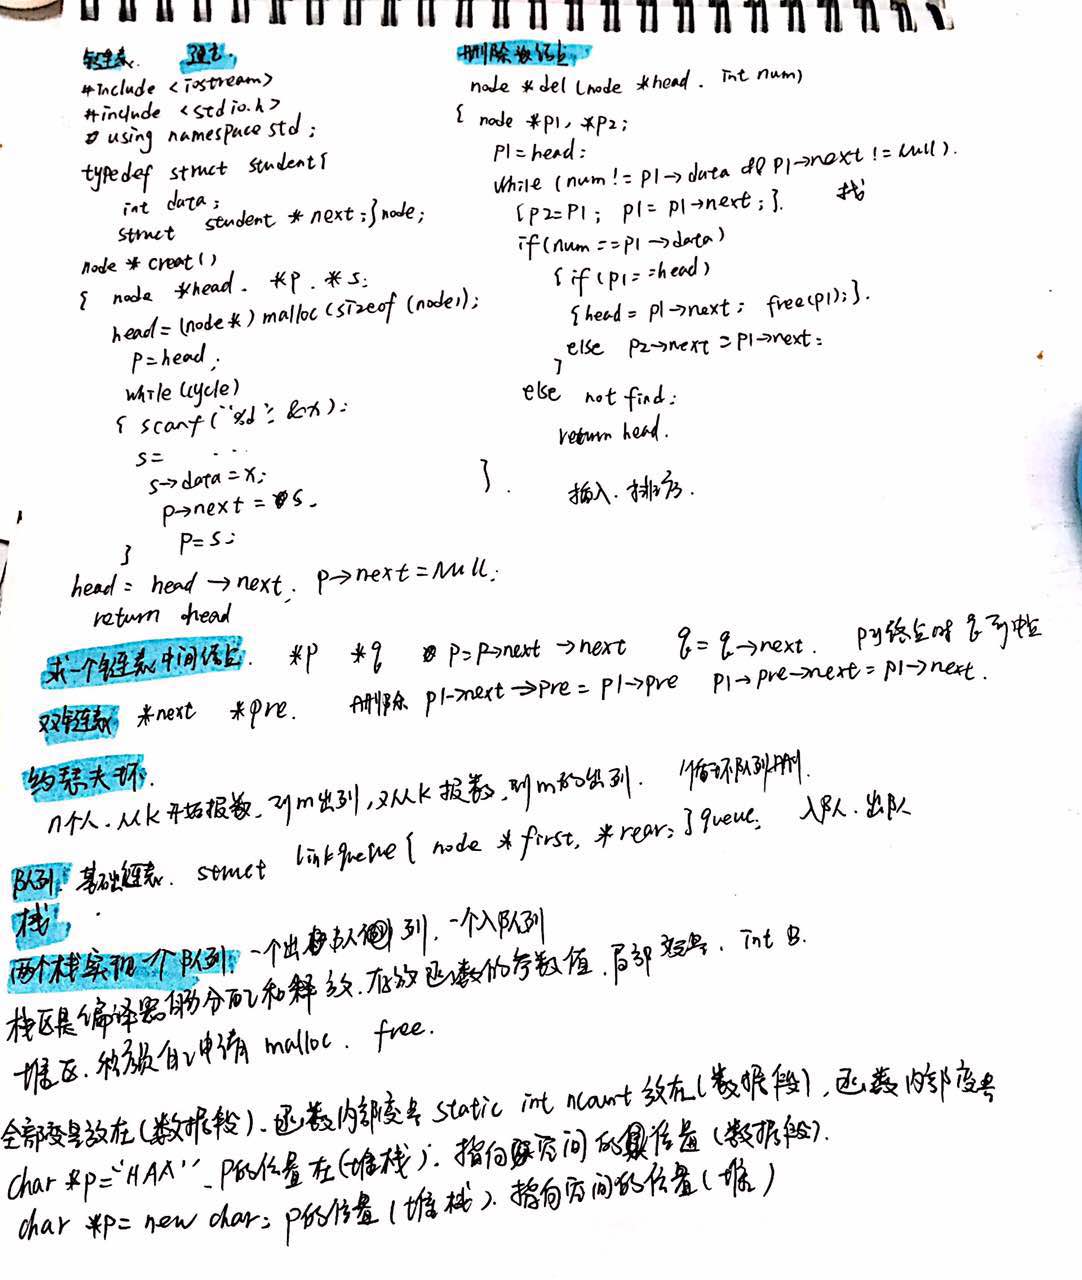 链表. 建立.
#include <iostream>
#include <stdio.h>
using namespace std;
typedef struct student{
int data;
struct student * next;}node;
node * creat()
{ node *head. *p. *s;
head=(node*) malloc(sizeof (node));
p=head;
while (cycle)
{ scanf("%d", &x);
s= ...
s->data=x;
p->next = s.
p=s;
}
head = head ->next. p->next=Null;
return head
删除 结点
node *del (node *head. int num)
{ node *p1, *p2;
p1=head;
while (num!= p1->data && p1->next != Null).
{p2=p1; p1= p1->next;}. 找
if(num ==p1 ->data)
{ if (p1==head)
{head = p1->next; free(p1);}.
else p2->next =p1->next;
}
else not find;
return head.
}. 插入. 排序.
求一个链表中间结点. *p *q p=p->next ->next q= q->next. p到终点时 q到中点
双链表 *next *pre. 删除 p1->next ->pre = p1->pre p1->pre->next = p1->next.
约瑟夫环.
n个人. 从k开始报数, 到m出列, 又从k报数, 到m的出列. 循环队列
队列. 基础链表. struct linkqueue { node * first, *rear; }queue; 入队. 出队
栈.
两个栈实现一个队列, 一个出队列, 一个入队列
栈区是编译器自动分配和释放. 存放函数的参数值, 局部变量. int B.
堆区. 自己申请 malloc. free.
全部变量放在(数据段). 函数内部变量 static int ncount 放在(数据段), 函数内部变量
char *p="HAA" p的位置在(堆栈). 指向空间的位置(数据段).
char *p= new char; p的位置(堆栈). 指向空间的位置(堆)